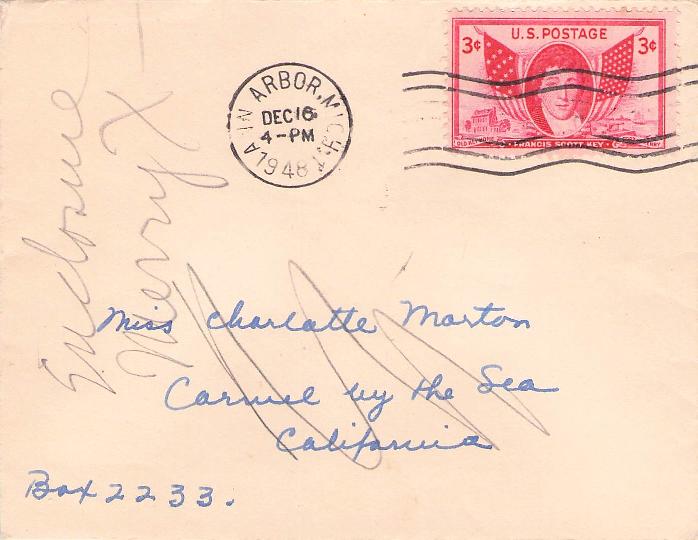 U.S. POSTAGE
3¢ 3¢
FRANCIS SCOTT KEY
ANN ARBOR, MICH.
DEC 16
4-PM
1948
Enclosure
Merry X
Miss Charlotte Morton
Carmel by the Sea
California
Box 2233.